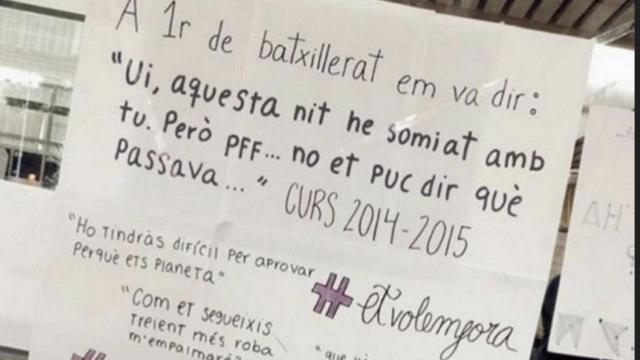 A 1r de batxillerat em va dir:
"Ui, aquesta nit he somiat amb
tu. Però PFF... no et puc dir què
passava..." CURS 2014-2015
"Ho tindràs difícil per aprovar
perquè ets planeta"
#etvolemfora
"Com et segueixis
traient més roba
m'empaimaré"
"que
AH